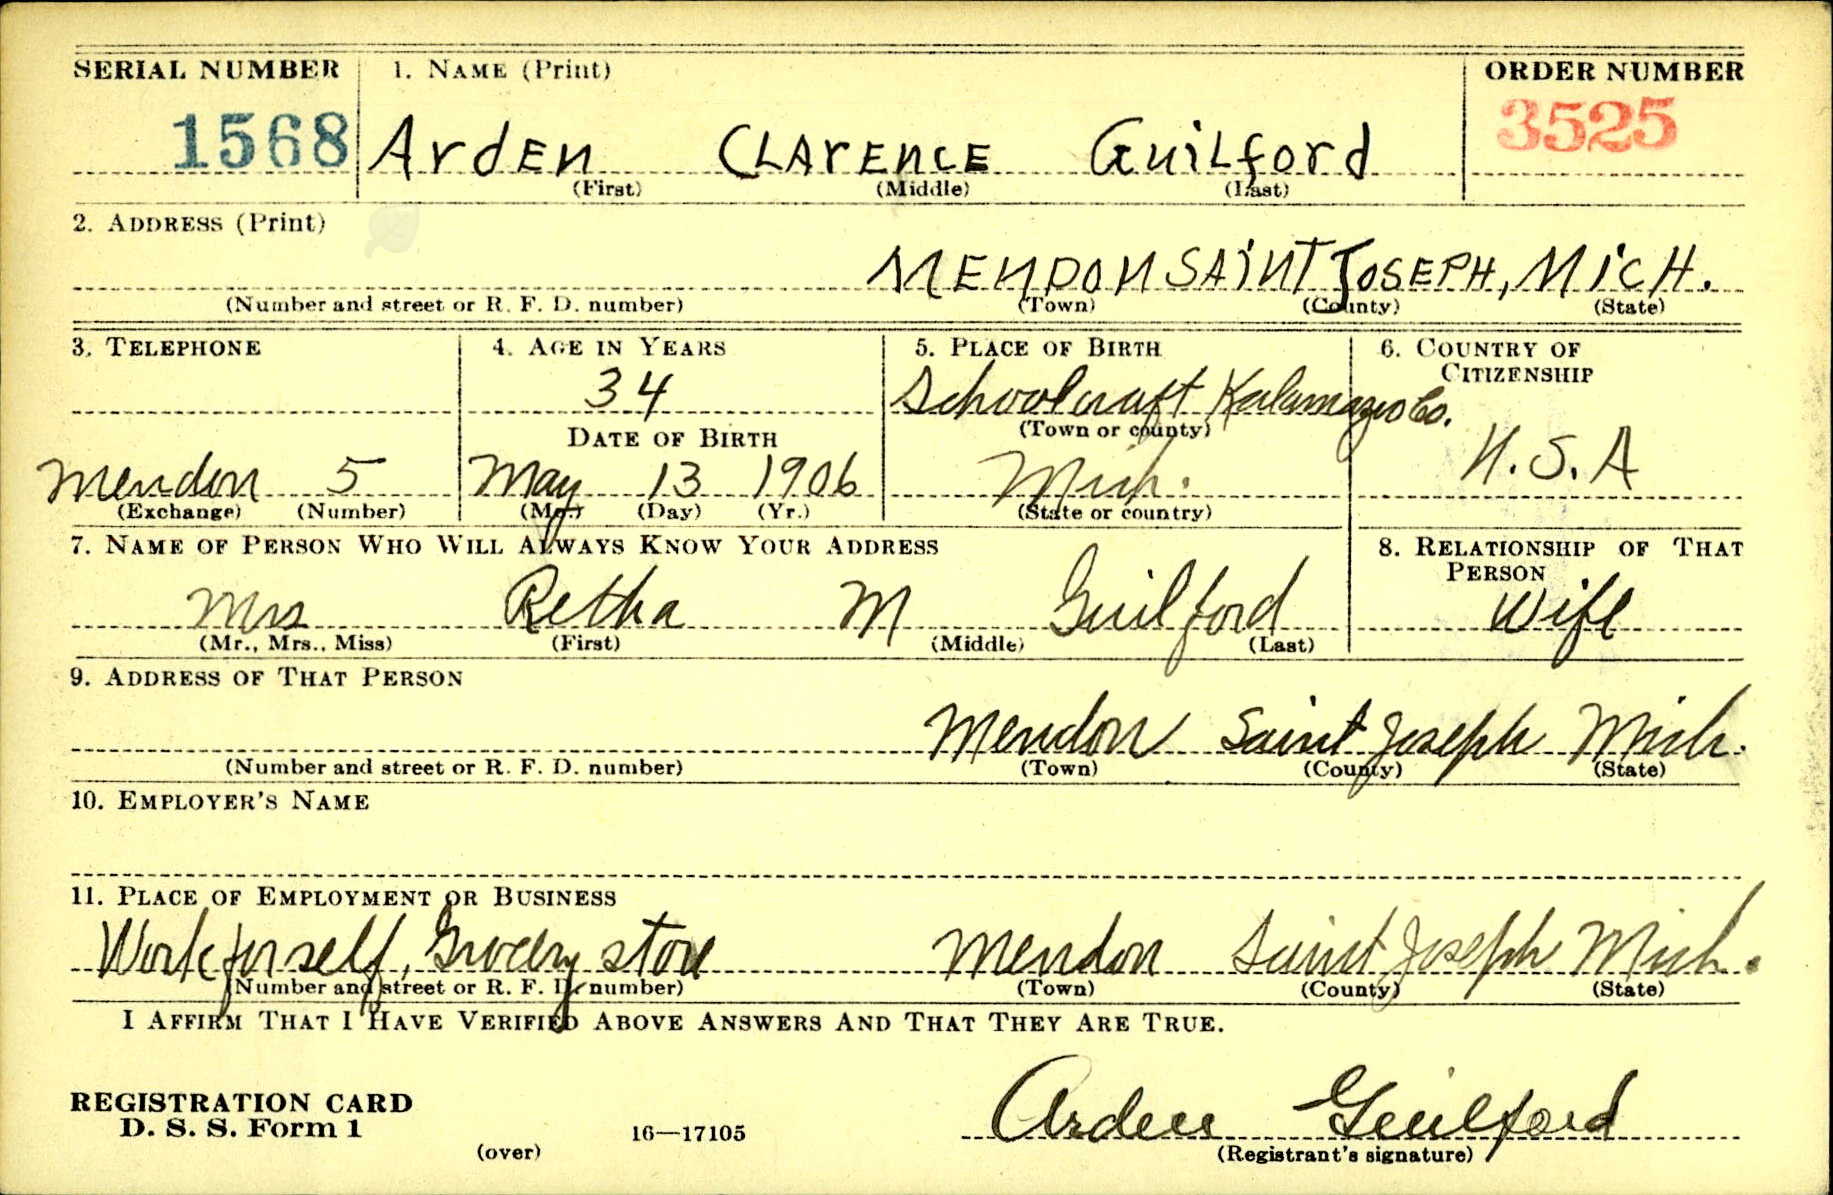 SERIAL NUMBER 1. NAME (Print) ORDER NUMBER
1568 Arden CLArENCE GuiLford 3525
(First) (Middle) (Last)
2. ADDRESS (Print)
MENDON SAiNT JOSEPH, MiCH.
(Number and street or R. F. D. number) (Town) (County) (State)
3. TELEPHONE 4. AGE IN YEARS 5. PLACE OF BIRTH 6. COUNTRY OF CITIZENSHIP
34 Schoolcraft Kalamazoo Co.
DATE OF BIRTH (Town or county)
Mendon 5 May 13 1906 Mich. U.S.A
(Exchange) (Number) (Mo.) (Day) (Yr.) (State or country)
7. NAME OF PERSON WHO WILL ALWAYS KNOW YOUR ADDRESS 8. RELATIONSHIP OF THAT PERSON
Mrs Retha M Guilford Wife
(Mr., Mrs., Miss) (First) (Middle) (Last)
9. ADDRESS OF THAT PERSON
Mendon Saint Joseph Mich.
(Number and street or R. F. D. number) (Town) (County) (State)
10. EMPLOYER'S NAME
11. PLACE OF EMPLOYMENT OR BUSINESS
Work for self, Grocery store Mendon Saint Joseph Mich.
(Number and street or R. F. D. number) (Town) (County) (State)
I AFFIRM THAT I HAVE VERIFIED ABOVE ANSWERS AND THAT THEY ARE TRUE.
REGISTRATION CARD
D. S. S. Form 1 16—17105 Arden Guilford
(over) (Registrant's signature)